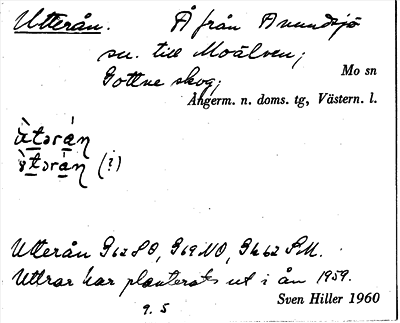 Utterån. Å från Anundsjö
sn. till Moälven;
Gottne skog;
Mo sn
Ångerm. n. doms. tg, Västern. l.
ùtərán
ə̀tərán (?)
Utterån G62SO, G69NO, Gk62SM.
Uttrar har planterats ut i ån 1959.
9. 5
Sven Hiller 1960